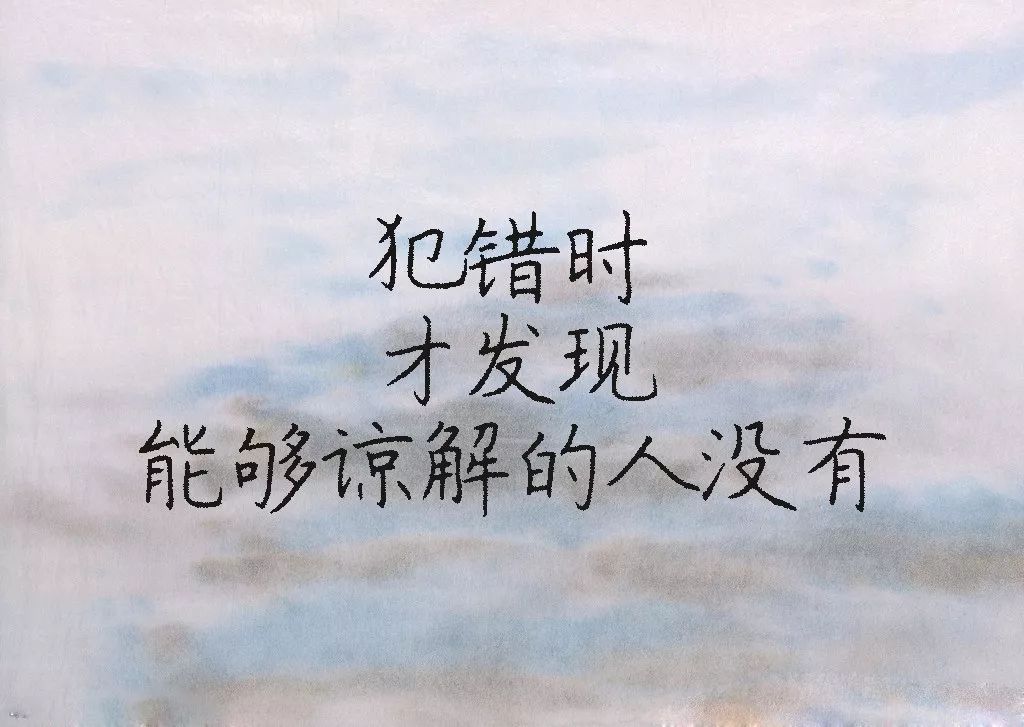 犯错时
才发现
能够谅解的人没有